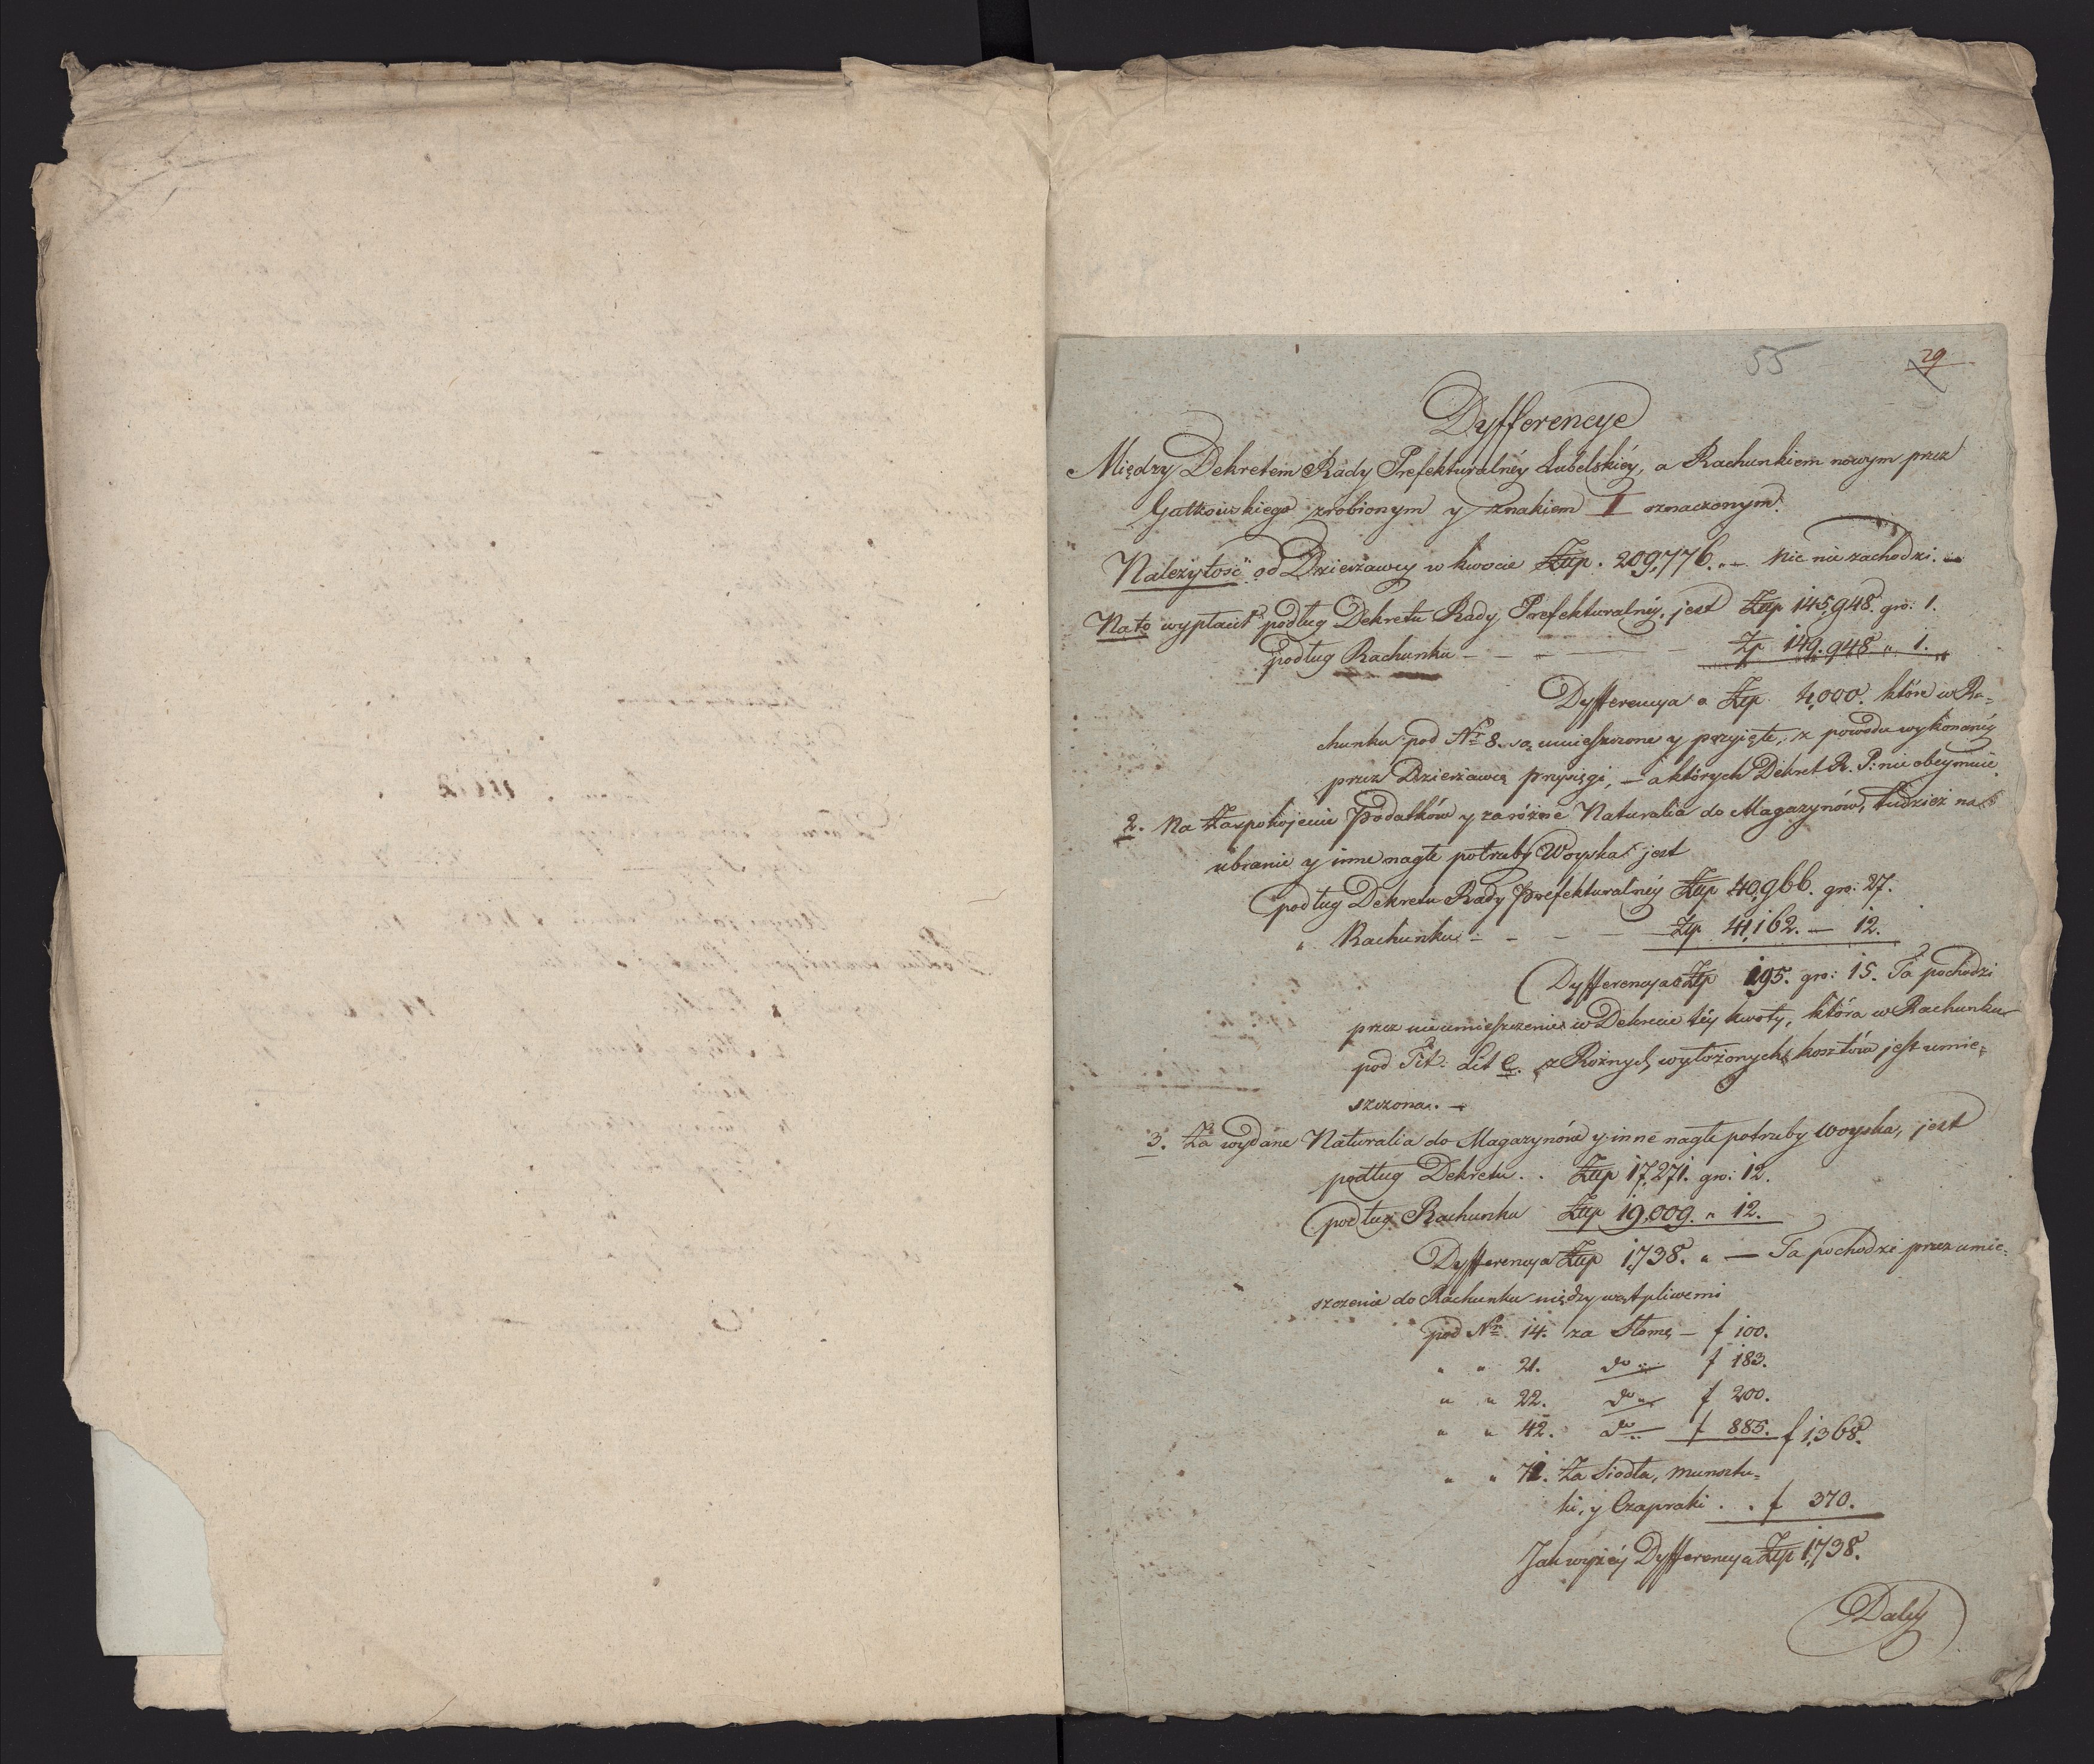 55
29
Dyfferencye
Między Dekretem Rady Prefekturalnéy Lubelskiéy, a Rachunkiem nowym przez
Gałkowskiego zrobionym y znakiem I oznaczonym.
Należytość od Dzierżawcy w kwocie Złp. 209,776. „ — nic nie zachodzi. —
Na to wypłacił podług Dekretu Rady Prefekturalnéy, jest Złp 145,948. gro: 1.
podług Rachunku — — „ — — Zp 149,948 „ 1. „
Dyfferencya a Złp 4,000. które w Ra-
chunku pod Nr 8. są umieszczone y przyięte, z powodu wykonanéy
przez Dzierżawcę przysięgi, — a których Dekret R. P: nie obeymuie.
2. Na Zaspokojenie Podatków y za różne Naturalia do Magazynów, tudzież na
ubranie y inne nagłe potrzeby Woyska jest
podług Dekretu Rady Prefekturalnéy Złp 40,966. gro: 27.
„ Rachunku — — — — Złp 41,162. — 12.
Dyfferencya a Złp 195. gro: 15. Ta pochodzi
przez nieumieszczenie w Dekrecie téy kwoty, która w Rachunku
pod Tit: Lit C. z Rożnych wyłożonych kosztów jest umie-
szczona. —
3. Za wydane Naturalia do Magazynów y inne nagłe potrzeby Woyska, jest
podług Dekretu . . Złp 17,271. gro: 12.
podług Rachunku Złp 19,009. „ 12.
Dyfferencya Złp 1,738. „ — Ta pochodzi przez umie-
szczenie do Rachunku między wątpliwemi
pod Nr 14. za Słomę — f 100.
„ „ 21. do — f 183.
„ „ 22. do — f 200.
„ „ 42. do — f 885. f 1,368.
„ „ 71. Za Siodła, munsztu-
ki, y Czapraki . . f 370.
Jak wyżéy Dyfferencya Złp 1,738.
Daléy